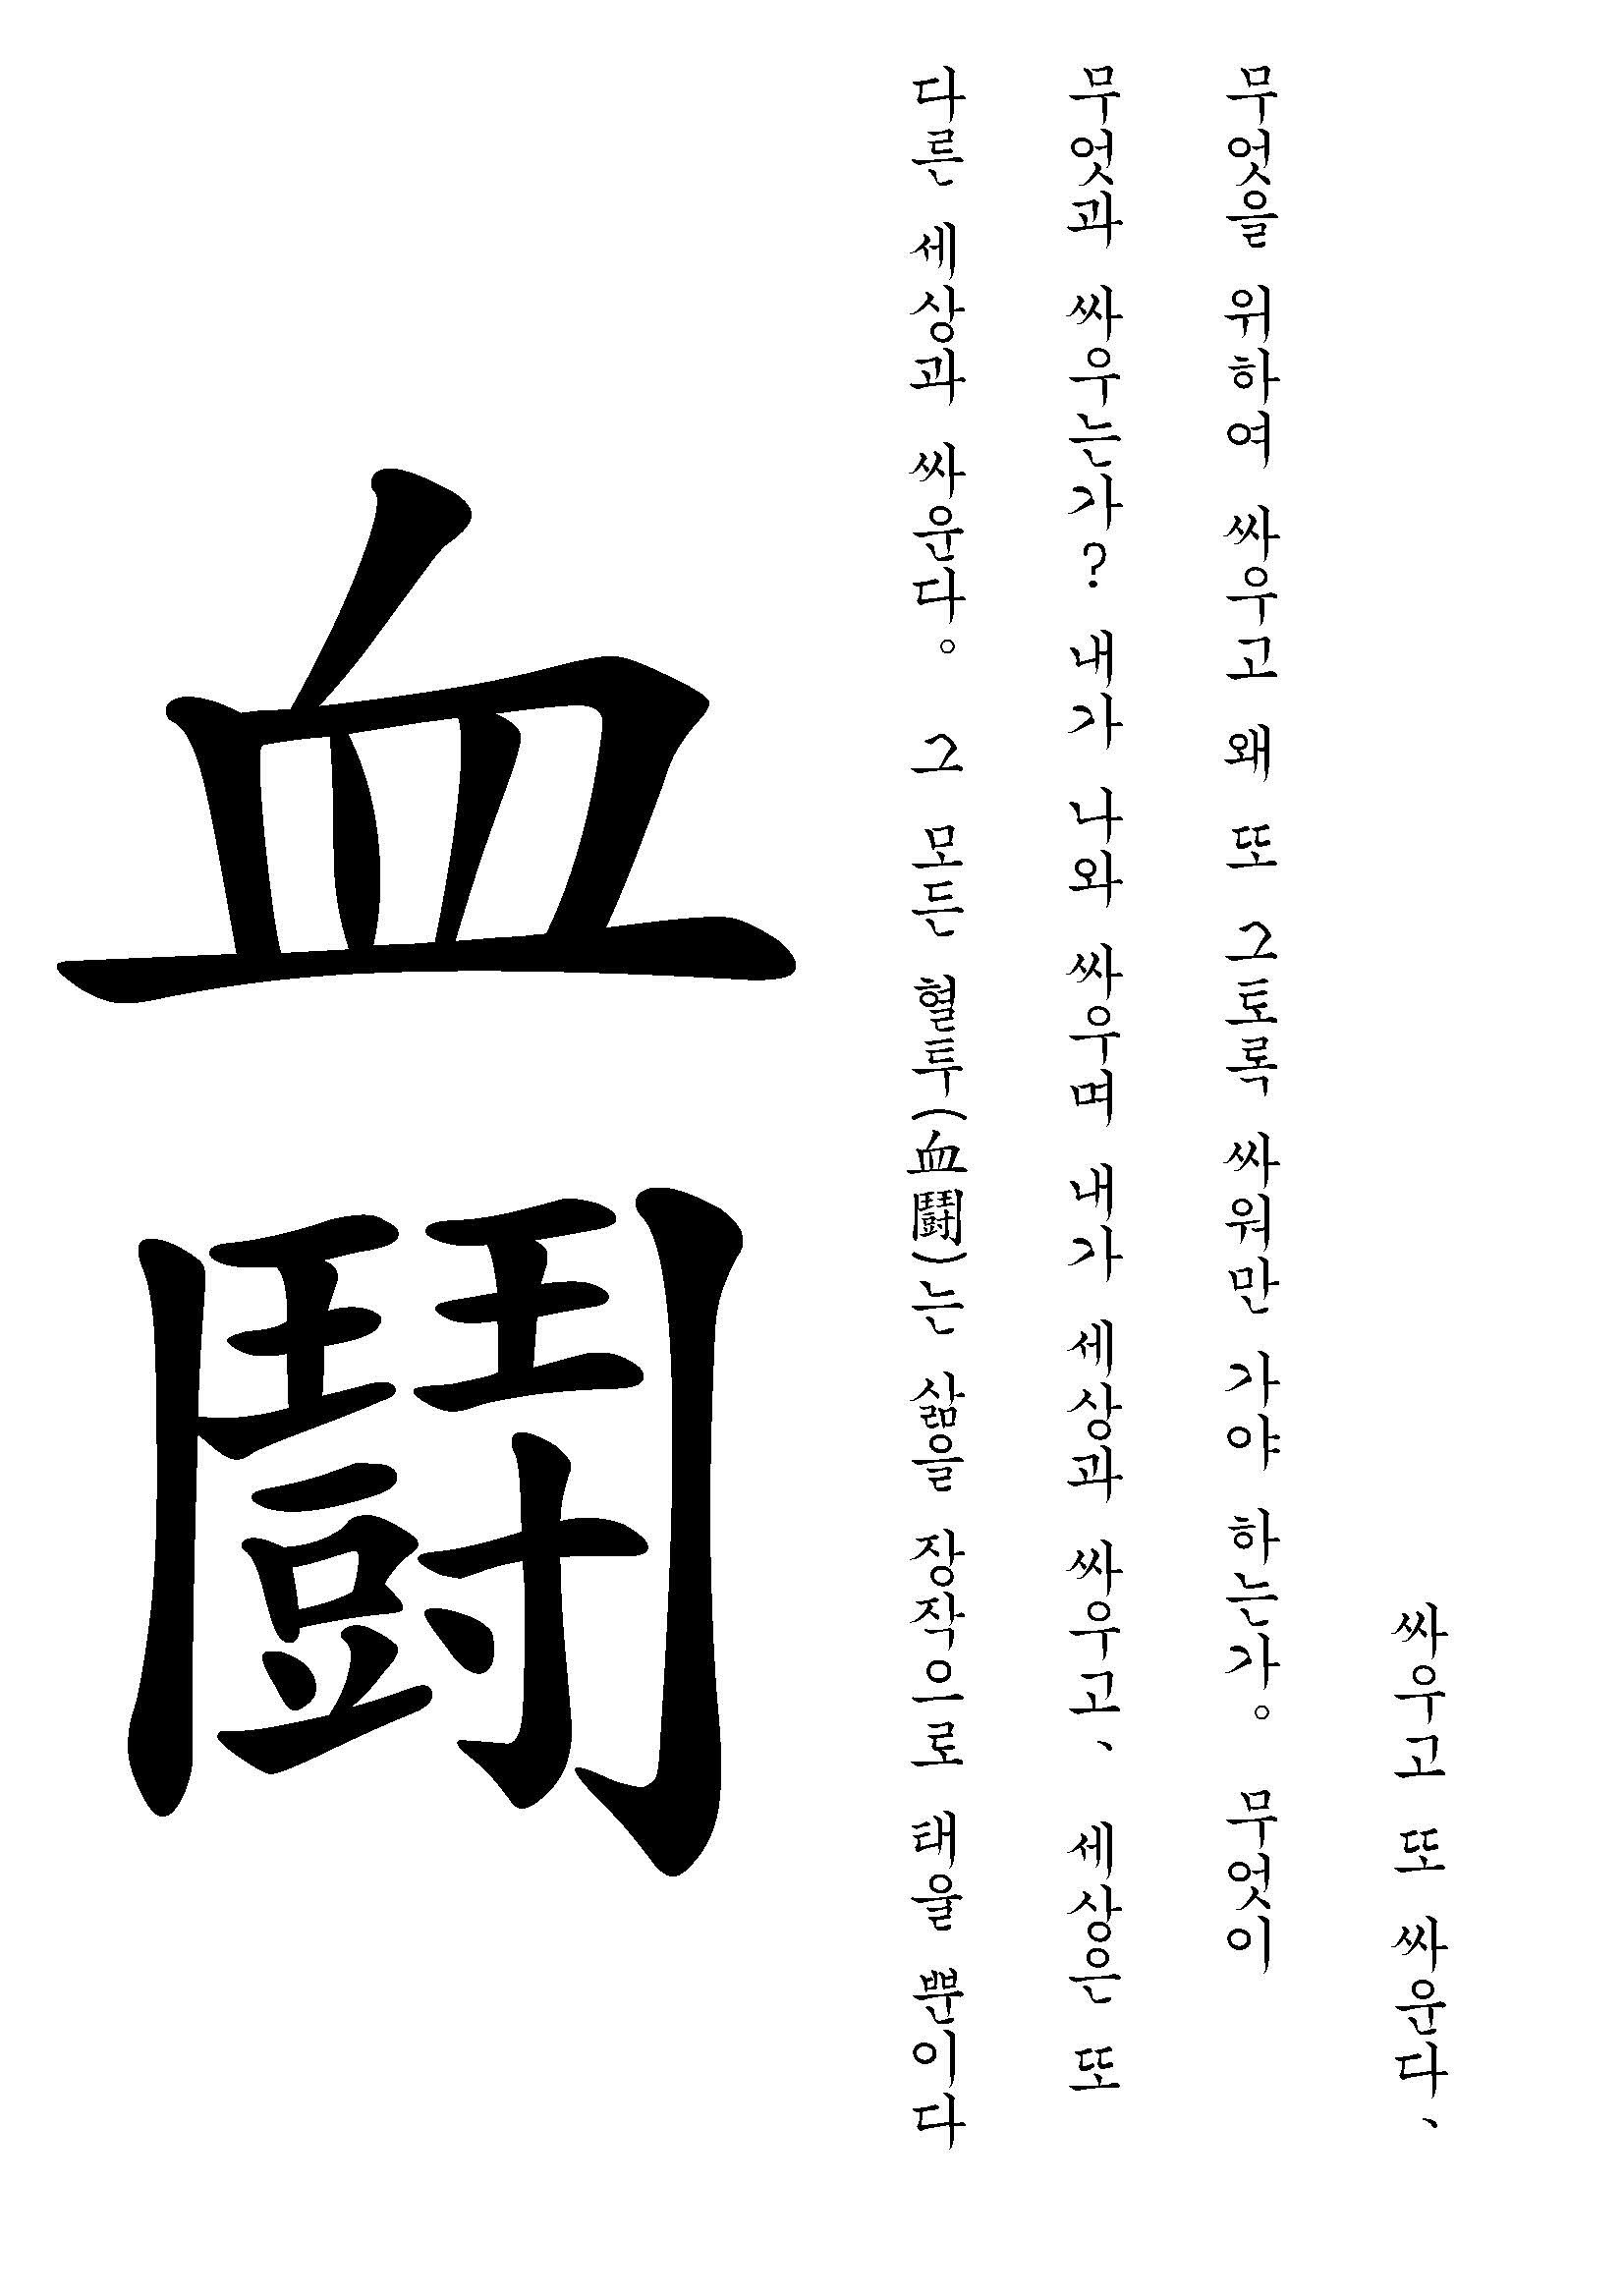 싸우고 또 싸운다、
무엇을 위하여 싸우고 왜 또 그토록 싸워만 가야 하는가。 무엇이
무엇과 싸우는가? 내가 나와 싸우며 내가 세상과 싸우고、 세상은 또
다른 세상과 싸운다。 그 모든 혈투(血鬪)는 삶을 장작으로 태울 뿐이다
血鬪